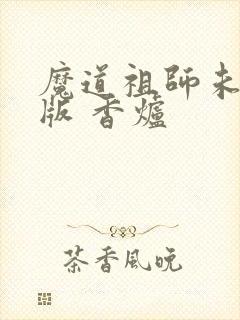 魔道祖師未
版 香爐
茶香風晚